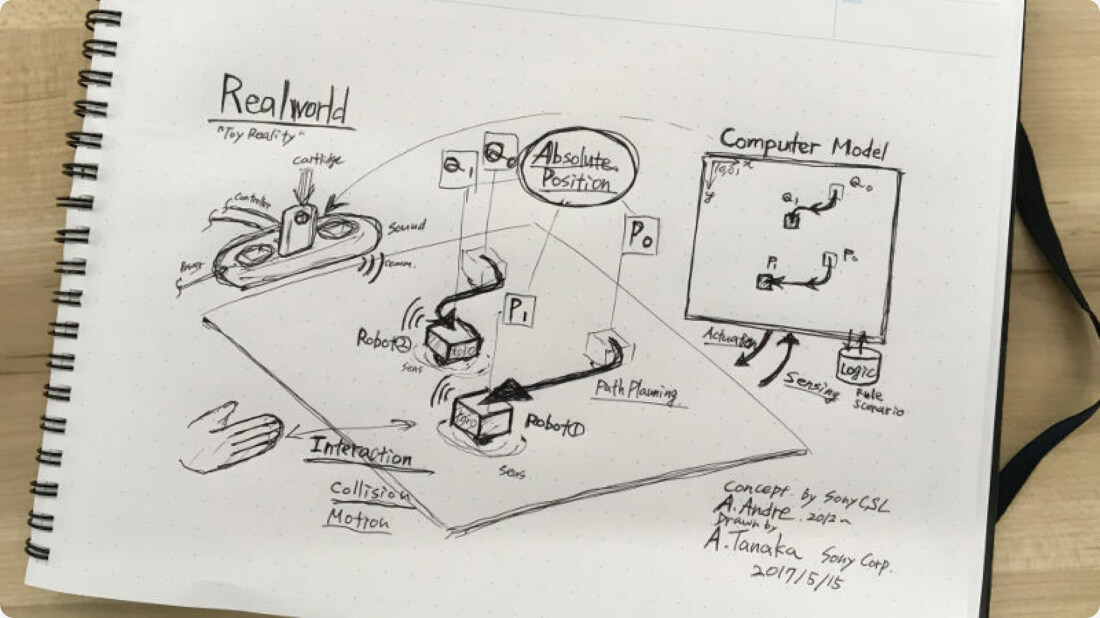 Realworld
"Toy Reality"
cartridge
Controller
Sound
Power
comm.
Q₁
Q₀
Absolute
Position
P₀
P₁
Robot②
sens
toio
Path Planning
Robot①
sens
Interaction
Collision
Motion
Computer Model
(0,0) x
y
Q₀
Q₁
P₁
P₀
Actuation
Sensing
Logic
Rule
Scenario
Concept. by Sony CSL
A. Andre. 2012~
Drawn by
A. Tanaka Sony Corp.
2017/5/15